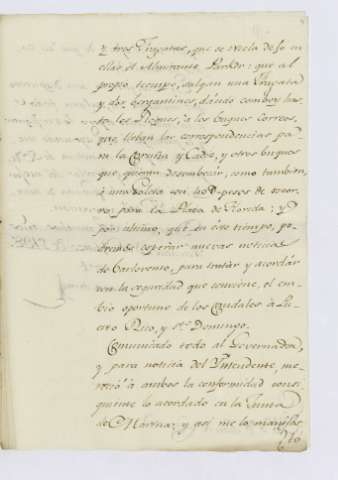 y tres Fragatas, que se recela de so en
ellas el Almirante Parker: que al
propio tiempo, salgan una Fragata
y dos bergantines, dando comboy has
ta los Pleques, a los buques correos,
que llevan las correspondencias pa
ra la Coruña y Cadiz, y otros buques
que quieran desembocar, como tambien,
á una Goleta con 40 D pesos de socor
ro, para la Plaza de Florida; y
por ultimo, que en este tiempo, po
dremos esperar nuevas noticias
de barlovento, para tratar y acordar
con la seguridad que conviene, el em
bio oportuno de los caudales à Pu
erto Rico, y Sto. Domingo.
Comunicado todo al Governador,
y para noticia del Yntendente, me
reció à ambos la conformidad consi
guiente lo acordado en la Junta
de Marina; y asi me lo manifes
tó